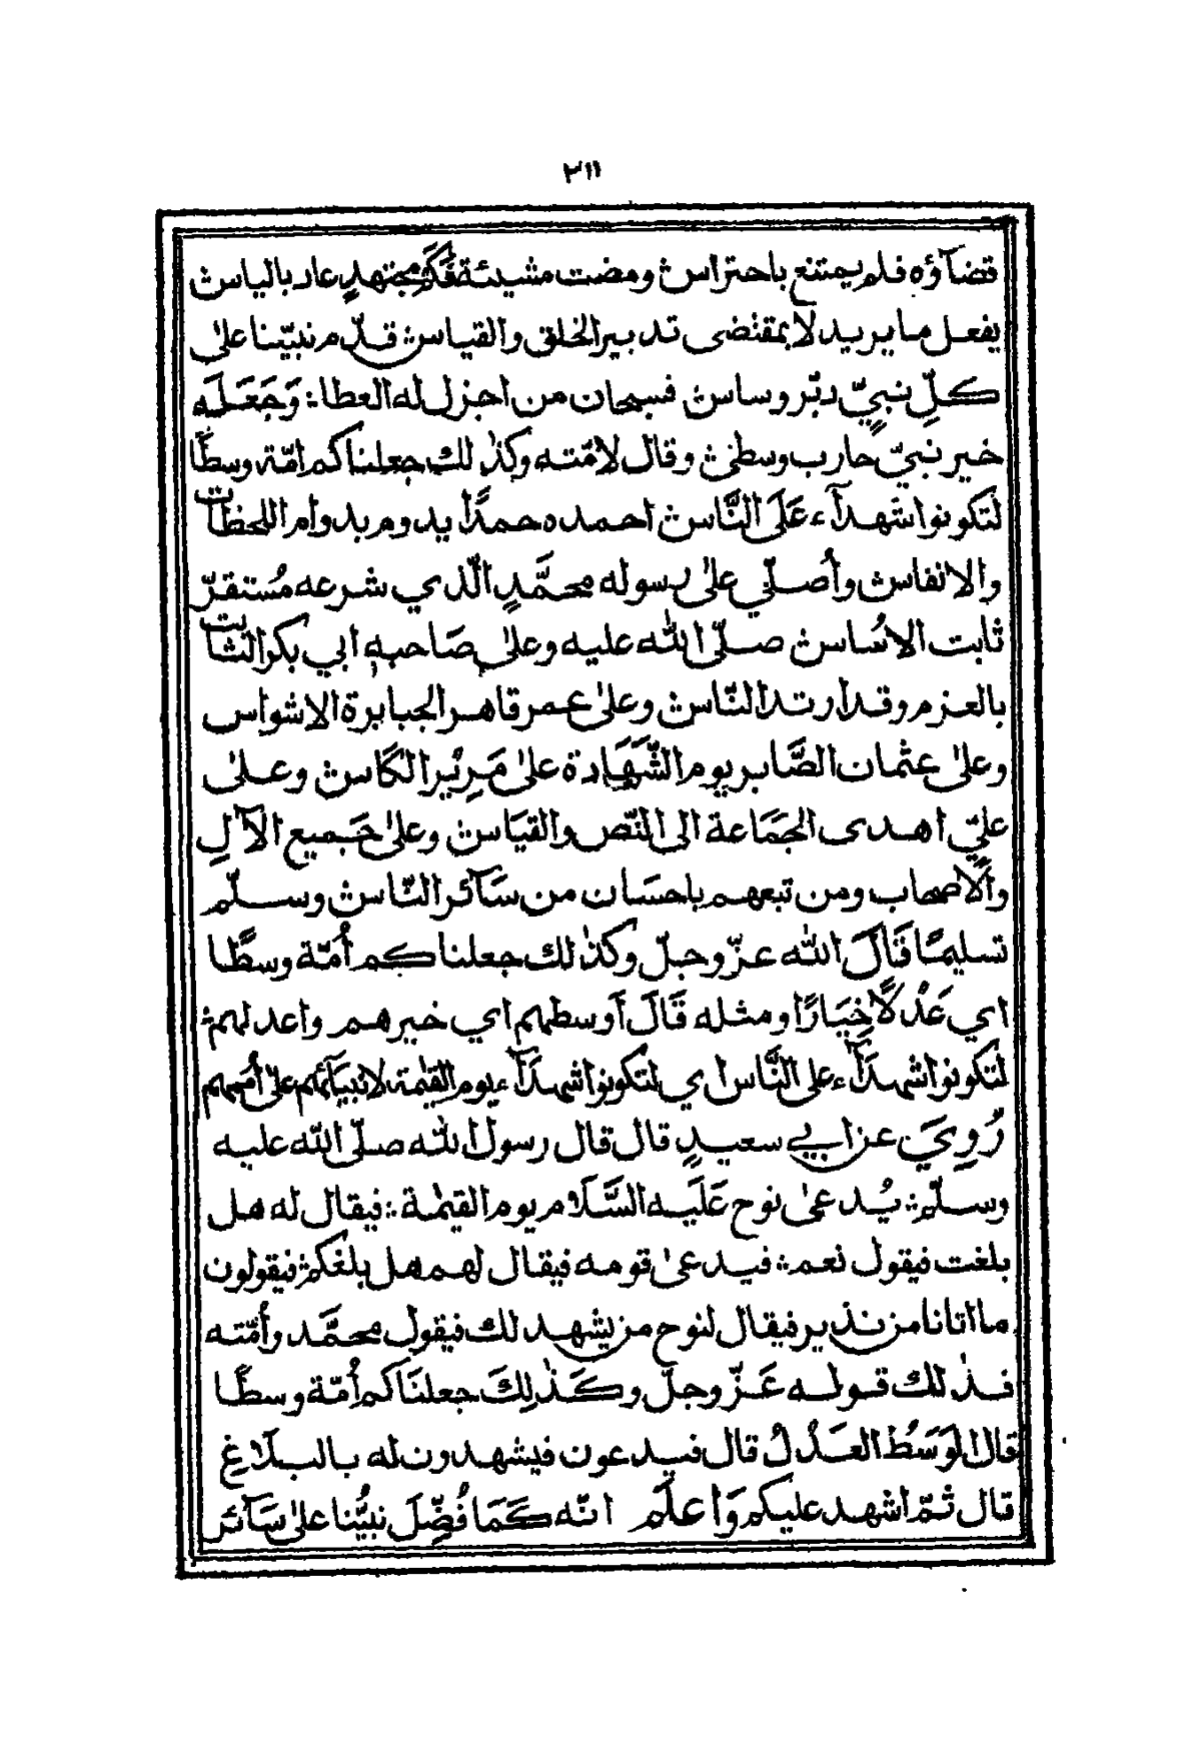 ٣١١
قضآؤه فلم يمتنع باحتراس ومضت مشيئة فكم مجتهدٍ عاد بالياس
يفعل ما يريد لا بمقتضى تدبير الخلق والقياس قدّم نبيّنا علىٰ
كلِّ نبيٍّ دبّر وساس فسبحان من اجزل له العطا؛ وَجَعَلَه
خير نبيّ حارب وسطىٰ وقال لامّته وكذٰلك جعلناكم امّة وسطًا
لتكونوا شهدآء عَلَى النَّاس احمده حمدًا يدوم بدوام اللحظات
والانفاس وأصلّي علىٰ رسوله محمَّدٍ الّذي شرعه مُستقرّ
ثابت الاسُاس صلّى الله عليه وعلىٰ صَاحبه ابي بكر الثابت
بالعزم وقد ارتد النّاس وعلىٰ عمر قاهر الجبابرة الاشواس
وعلىٰ عثمان الصَّابر يوم الشَّهَادة علىٰ مَرِيْر الكَاس وعلىٰ
عليّ اهدى الجَمَاعة الى النّص والقيَاس وعلىٰ جَميع الآلِ
والأصحاب ومن تبعهم باحسَان من سَآئر النّاس وسلّم
تسليمًا قَالَ الله عزّ وجلّ وكذٰلك جعلناكم أُمّة وسطًا
اي عَدْلًا خِيَارًا ومثله قَالَ أوسطهم اي خيرهم واعدلهم
لتكونوا شهدَآء على النَّاس اي لتكونوا شهدَآء يوم القيٰمة لانبيَآئهم علىٰ أممهم
رُوِيَ عن ابي سعيدٍ قال قال رسول الله صلّى الله عليه
وسلّم يُدعىٰ نوح عَلَيه السَّلَام يوم القيٰمة فيقال له هل
بلغت فيقول نعم فيدعىٰ قومه فيقال لهم هل بلغكم فيقولون
ما اتانا من نذير فيقال لنوح من يشهد لك فيقول محمَّد وأمّته
فذٰلك قوله عَزّ وجلّ وكَذٰلِكَ جعلنَاكم أُمّة وسطًا
قال الوَسَطُ العَدْلُ قال فيدعون فيشهدون له بالبلَاغِ
قال ثمّ اشهد عليكم وَاعلَم انّه كَمَا فُضِّلَ نبيُّنا علىٰ سَآئر